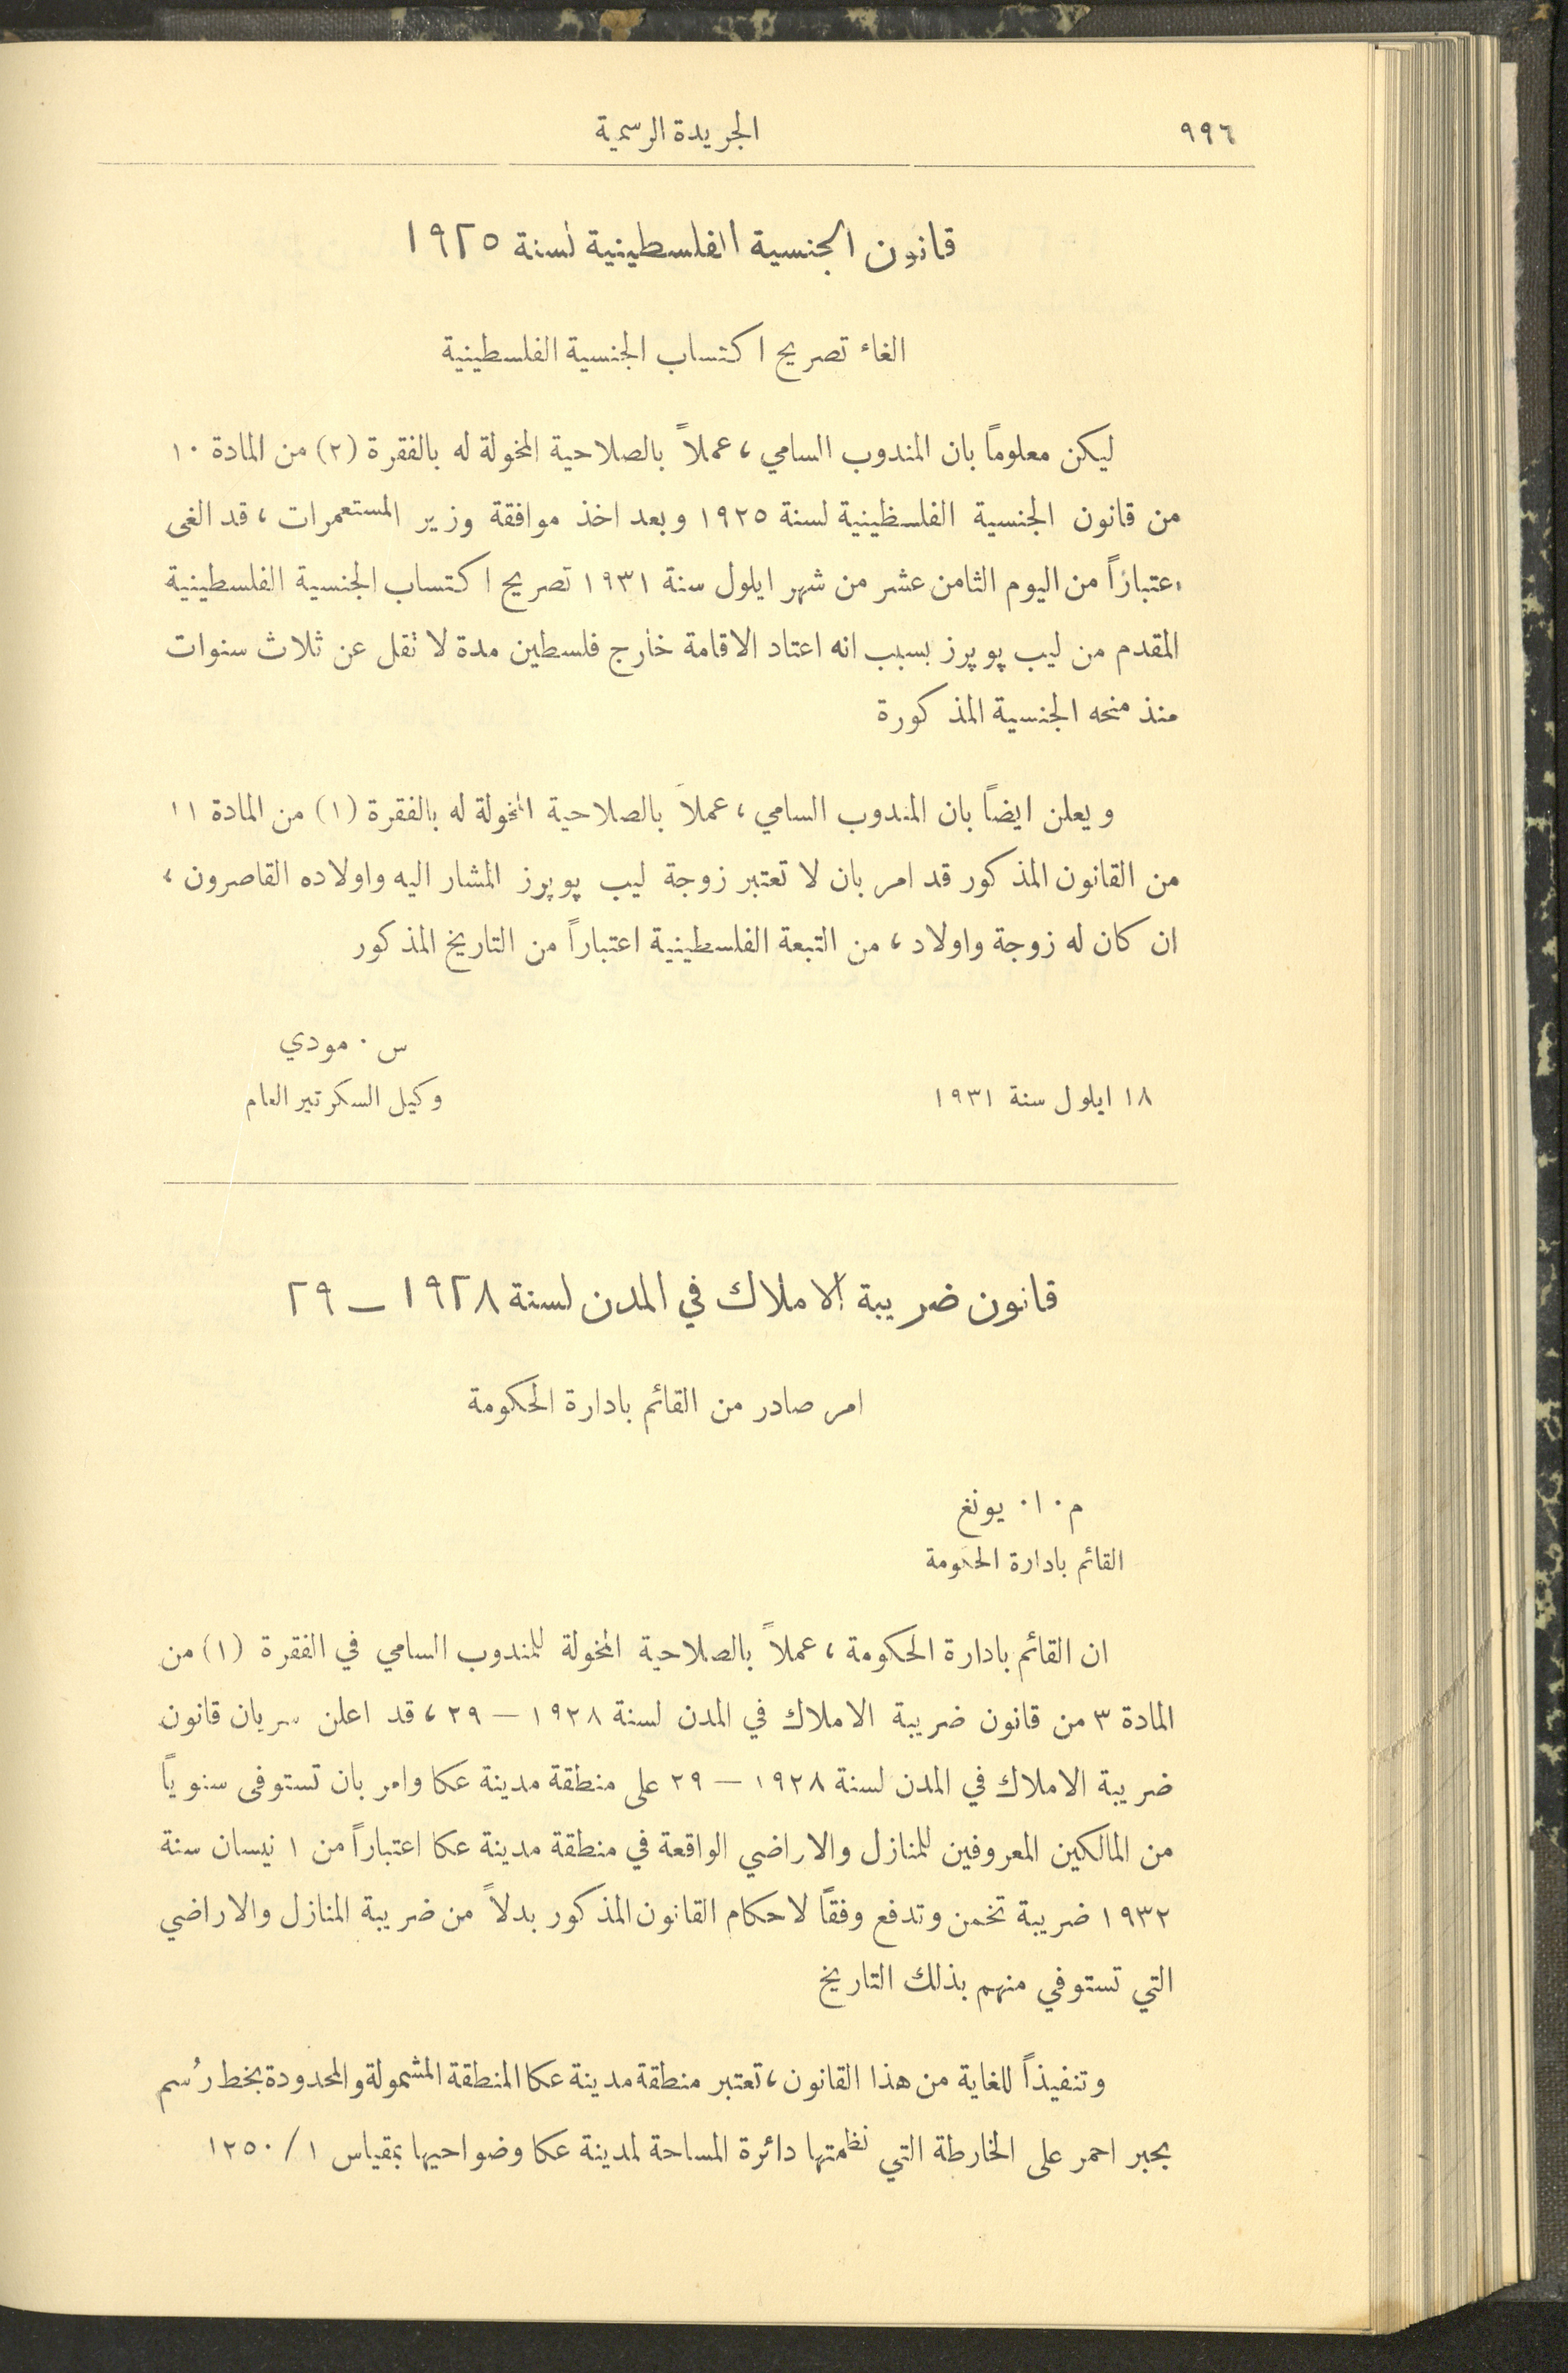 ٩٩٦
الجريدة الرسمية
قانون الجنسية الفلسطينية لسنة ١٩٢٥
الغاء تصريح اكتساب الجنسية الفلسطينية
ليكن معلوماً بان المندوب السامي، عملاً بالصلاحية المخولة له بالفقرة (٢) من المادة ١٠
من قانون الجنسية الفلسظينية لسنة ١٩٢٥ وبعد اخذ موافقة وزير المستعمرات، قد الغى
اعتباراً من اليوم الثامن عشر من شهر ايلول سنة ١٩٣١ تصريح اكتساب الجنسية الفلسطينية
المقدم من ليب پوپرز بسبب انه اعتاد الاقامة خارج فلسطين مدة لا تقل عن ثلاث سنوات
منذ منحه الجنسية المذكورة
ويعلن ايضاً بان المندوب السامي، عملاً بالصلاحية المخولة له بالفقرة (١) من المادة ١١
من القانون المذكور قد امر بان لا تعتبر زوجة ليب پوپرز المشار اليه واولاده القاصرون،
ان كان له زوجة واولاد، من التبعة الفلسطينية اعتباراً من التاريخ المذكور
س. مودي
١٨ ايلول سنة ١٩٣١
وكيل السكرتير العام
قانون ضريبة الاملاك في المدن لسنة ١٩٢٨ – ٢٩
امر صادر من القائم بادارة الحكومة
م. ا. يونغ
القائم بادارة الحكومة
ان القائم بادارة الحكومة، عملاً بالصلاحية المخولة للمندوب السامي في الفقرة (١) من
المادة ٣ من قانون ضريبة الاملاك في المدن لسنة ١٩٢٨ – ٢٩، قد اعلن سريان قانون
ضريبة الاملاك في المدن لسنة ١٩٢٨ – ٢٩ على منطقة مدينة عكا وامر بان تستوفى سنوياً
من المالكين المعروفين للمنازل والاراضي الواقعة في منطقة مدينة عكا اعتباراً من ١ نيسان سنة
١٩٣٢ ضريبة تخمن وتدفع وفقاً لاحكام القانون المذكور بدلاً من ضريبة المنازل والاراضي
التي تستوفي منهم بذلك التاريخ
وتنفيذاً للغاية من هذا القانون، تعتبر منطقة مدينة عكا المنطقة المشمولة والمحدودة بخط رُسم
بحبر احمر على الخارطة التي نظمتها دائرة المساحة لمدينة عكا وضواحيها بمقياس ١/١٢٥٠